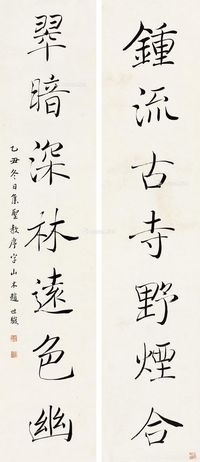 鍾流古寺野煙合
翠暗深林遠色幽
乙丑冬日集聖教序字山木趙世駿